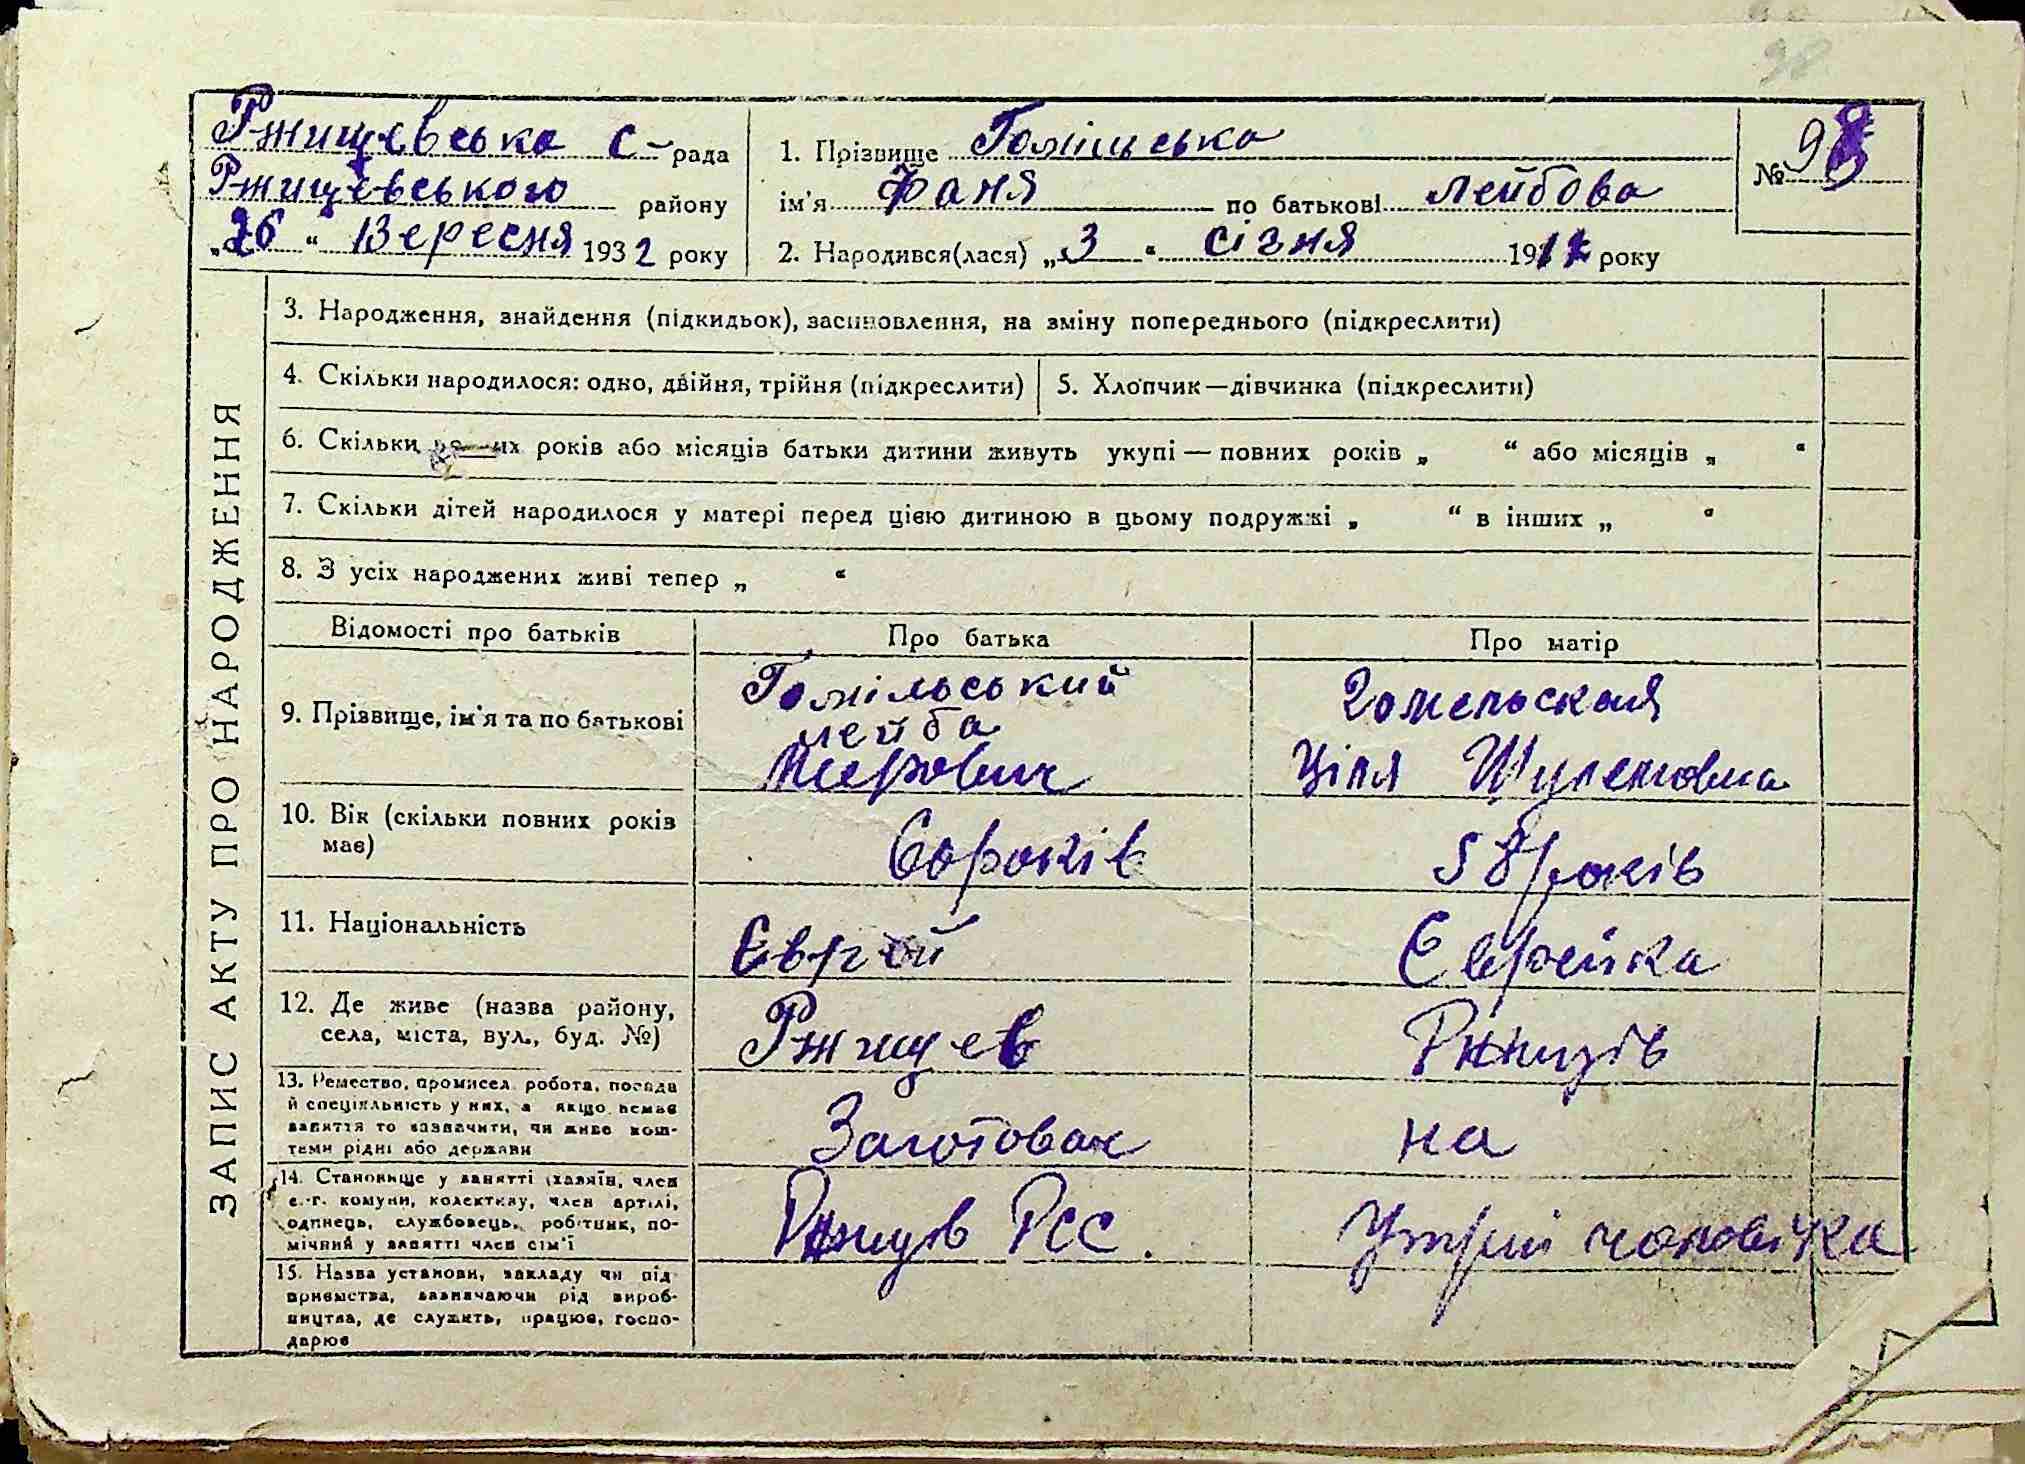 98
Ржищевська с-рада
Ржищевського району
„26“ Вересня 1932 року
1. Прізвище Гомільська
ім'я Фаня по батькові Лейбова
2. Народився(лася) „3“ січня 191 року
№ 98
ЗАПИС АКТУ ПРО НАРОДЖЕННЯ
3. Народження, знайдення (підкидьок), засиновлення, на зміну попереднього (підкреслити)
4. Скільки народилося: одно, двійня, трійня (підкреслити)
5. Хлопчик—дівчинка (підкреслити)
6. Скільки років або місяців батьки дитини живуть укупі — повних років „ “ або місяців „ “
7. Скільки дітей народилося у матері перед цією дитиною в цьому подружжі „ “ в інших „ “
8. З усіх народжених живі тепер „ “
Відомості про батьків
Про батька
Про матір
9. Прізвище, ім'я та по батькові
Гомільський
Лейба
Мерович
Гомельская
Ціля Шулемовна
10. Вік (скільки повних років
має)
60 років
58 років
11. Національність
Єврей
Єврейка
12. Де живе (назва району,
села, міста, вул., буд. №)
Ржищев
Ржищів
13. Ремество, промисел, робота, посада
й спеціяльність у них, а якщо немає
заняття то зазначити, чи живе кош-
теми рідні або держави
Заготовач
на
14. Становище у занятті (хазяїн, член
с.-г. комуни, колективу, член артілі,
одинець, службовець, робітник, по-
мічний у занятті член сім'ї
Ржищів РСС.
Утрим чоловіка
15. Назва установи, закладу чи під-
приємства, зазначаючи рід вироб-
ництва, де служить, працює, госпо-
дарює